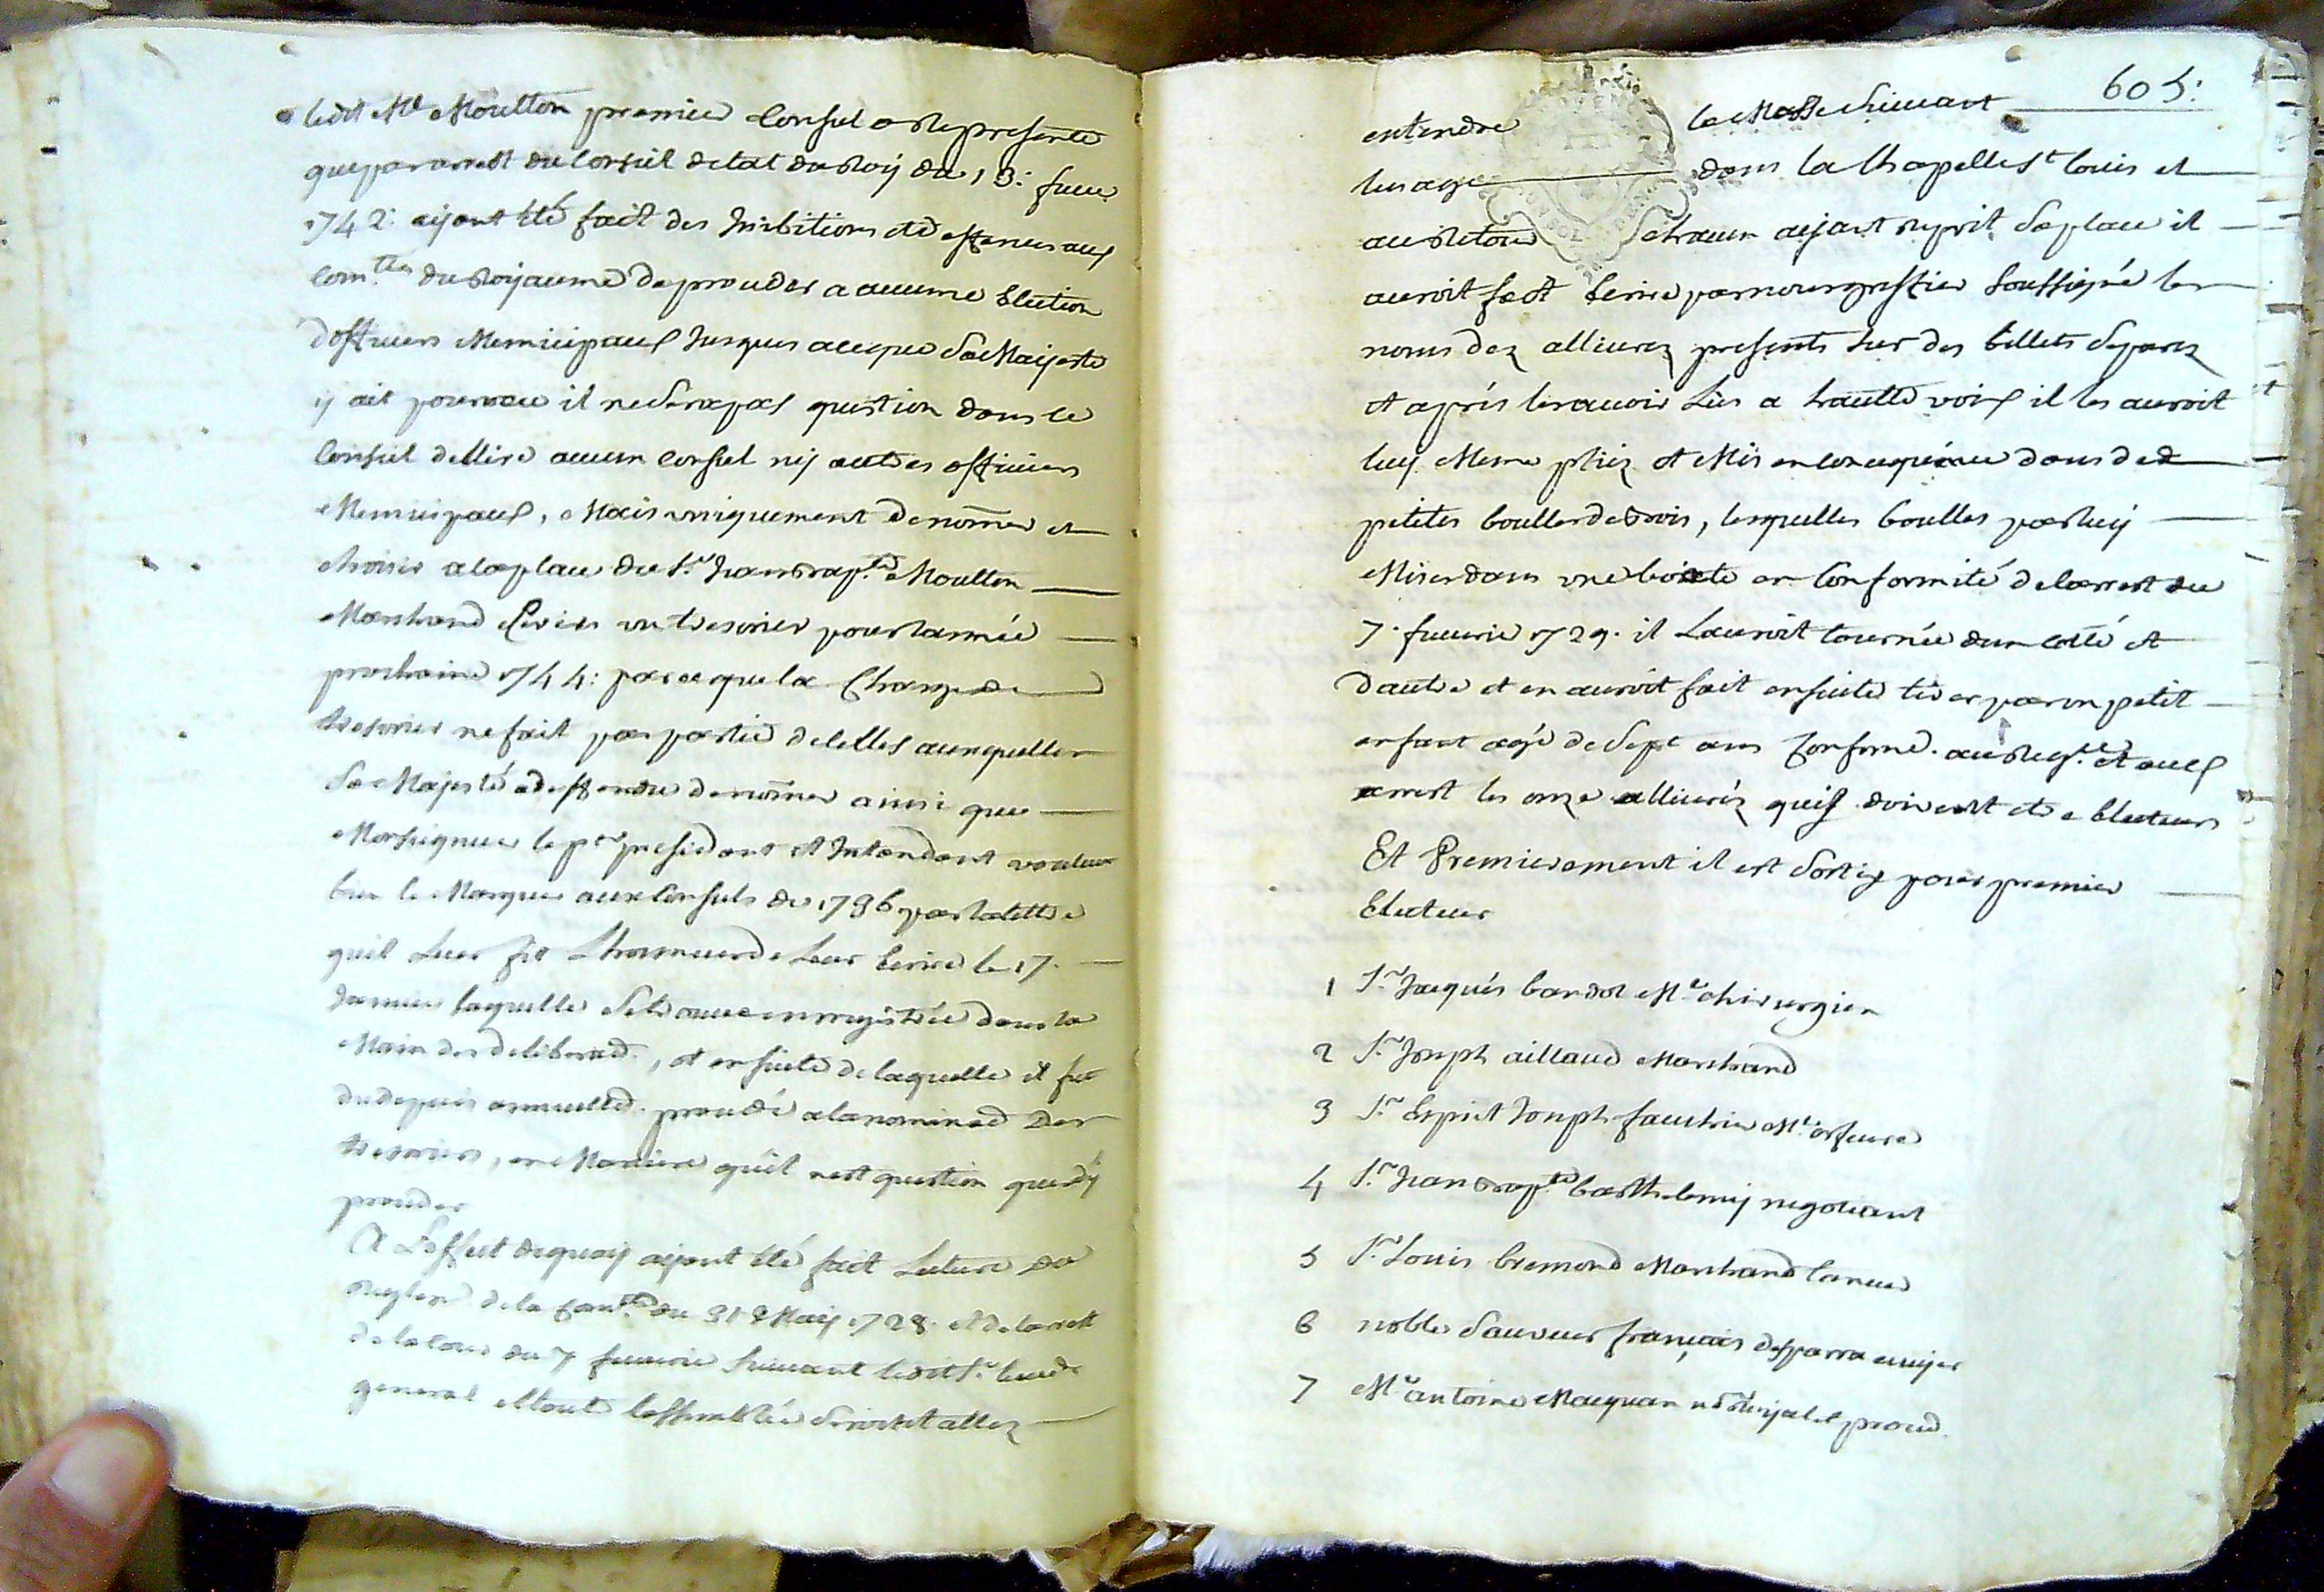 ledit Me Moutton premier Consul a represanté
que par arrest du Conseil detat du Roy du 13: feuv.
1742: ayant eté fait des Inibitions et deffences aux
Com.tés du Royaume de proceder a aucune Election
dofficiers Municipaux Jusques aceque Sa Majesté
y ait pourveu il ne sera pas question dans ce
Conseil dellire aucun consul ny autres officiers
Municipaux, Mais uniquement de nom̃er et
choisir a la place du Sr. Jean Bap.te Moutton
Marchand Cirier un tresorier pour lannée
prochaine 1744: par ce que la Charge de
tresorier ne fait pas partie de celles auxquelles
Sa Majesté a deffendu de nom̃er ainsi que
Monseigneur le pr. president et Intendant voulut
bien le Marquer aux Consuls de 1736 par la lettre
quil Leur fit Lhonneur de Leur Ecrire le 17.
Janvier laquelle se trouve enregistrée dans le
Main des deliberaõ., et ensuite de laquelle il fut
du depuis annuellem. procedé a la nominaõ des
tresoriers, en Maniere quil nest question que dy
proceder
A Leffect dequoy ayant eté fait Lecture du
Reglem. de la Com.té du 31 May 1728. et de larrest
de la Cour du 7 feuvrier suivant ledit Sr.
general et toute lassemblée seroint allez
605:
entendre la Messe suivant
lusage dans la Chapelle St. Louis et
au Retour chacun ayant reprit sa place il
auroit fait Ecrire par nous greffier soussigné les
noms des alliurez presents sur des billets separez
et aprés les avoir Lus a haulte voix il les auroit
luy Meme pliez et Mis dans des
petites boulles de bois, lesquelles boulles par luy
Mises dans une boitte en Conformité de larrest du
7. feuvrie 1729. il Lauroit tournée dun cotté et
dautre et en auroit fait ensuite tirer par un petit
enfant agé de sept ans Conformé. au Regl.t et aux
arrest les onze alliurés quis doivent etre Electeurs
Et Premierement il est sortis pour premier
Electeur
1 Sr. Jacques bandol Me. chirurgien
2 Sr. Joseph aillaud Marchand
3 Sr. Esprit Joseph fauchier Me. orfeure
4 Sr. Jean Bap.te barthelemy negotiant
5 Sr. Louis bremond Marchand taneur
6 noble Sauveur françois desparra ecuyer
7 Me. antoine Maequan nore. Royal et procur.